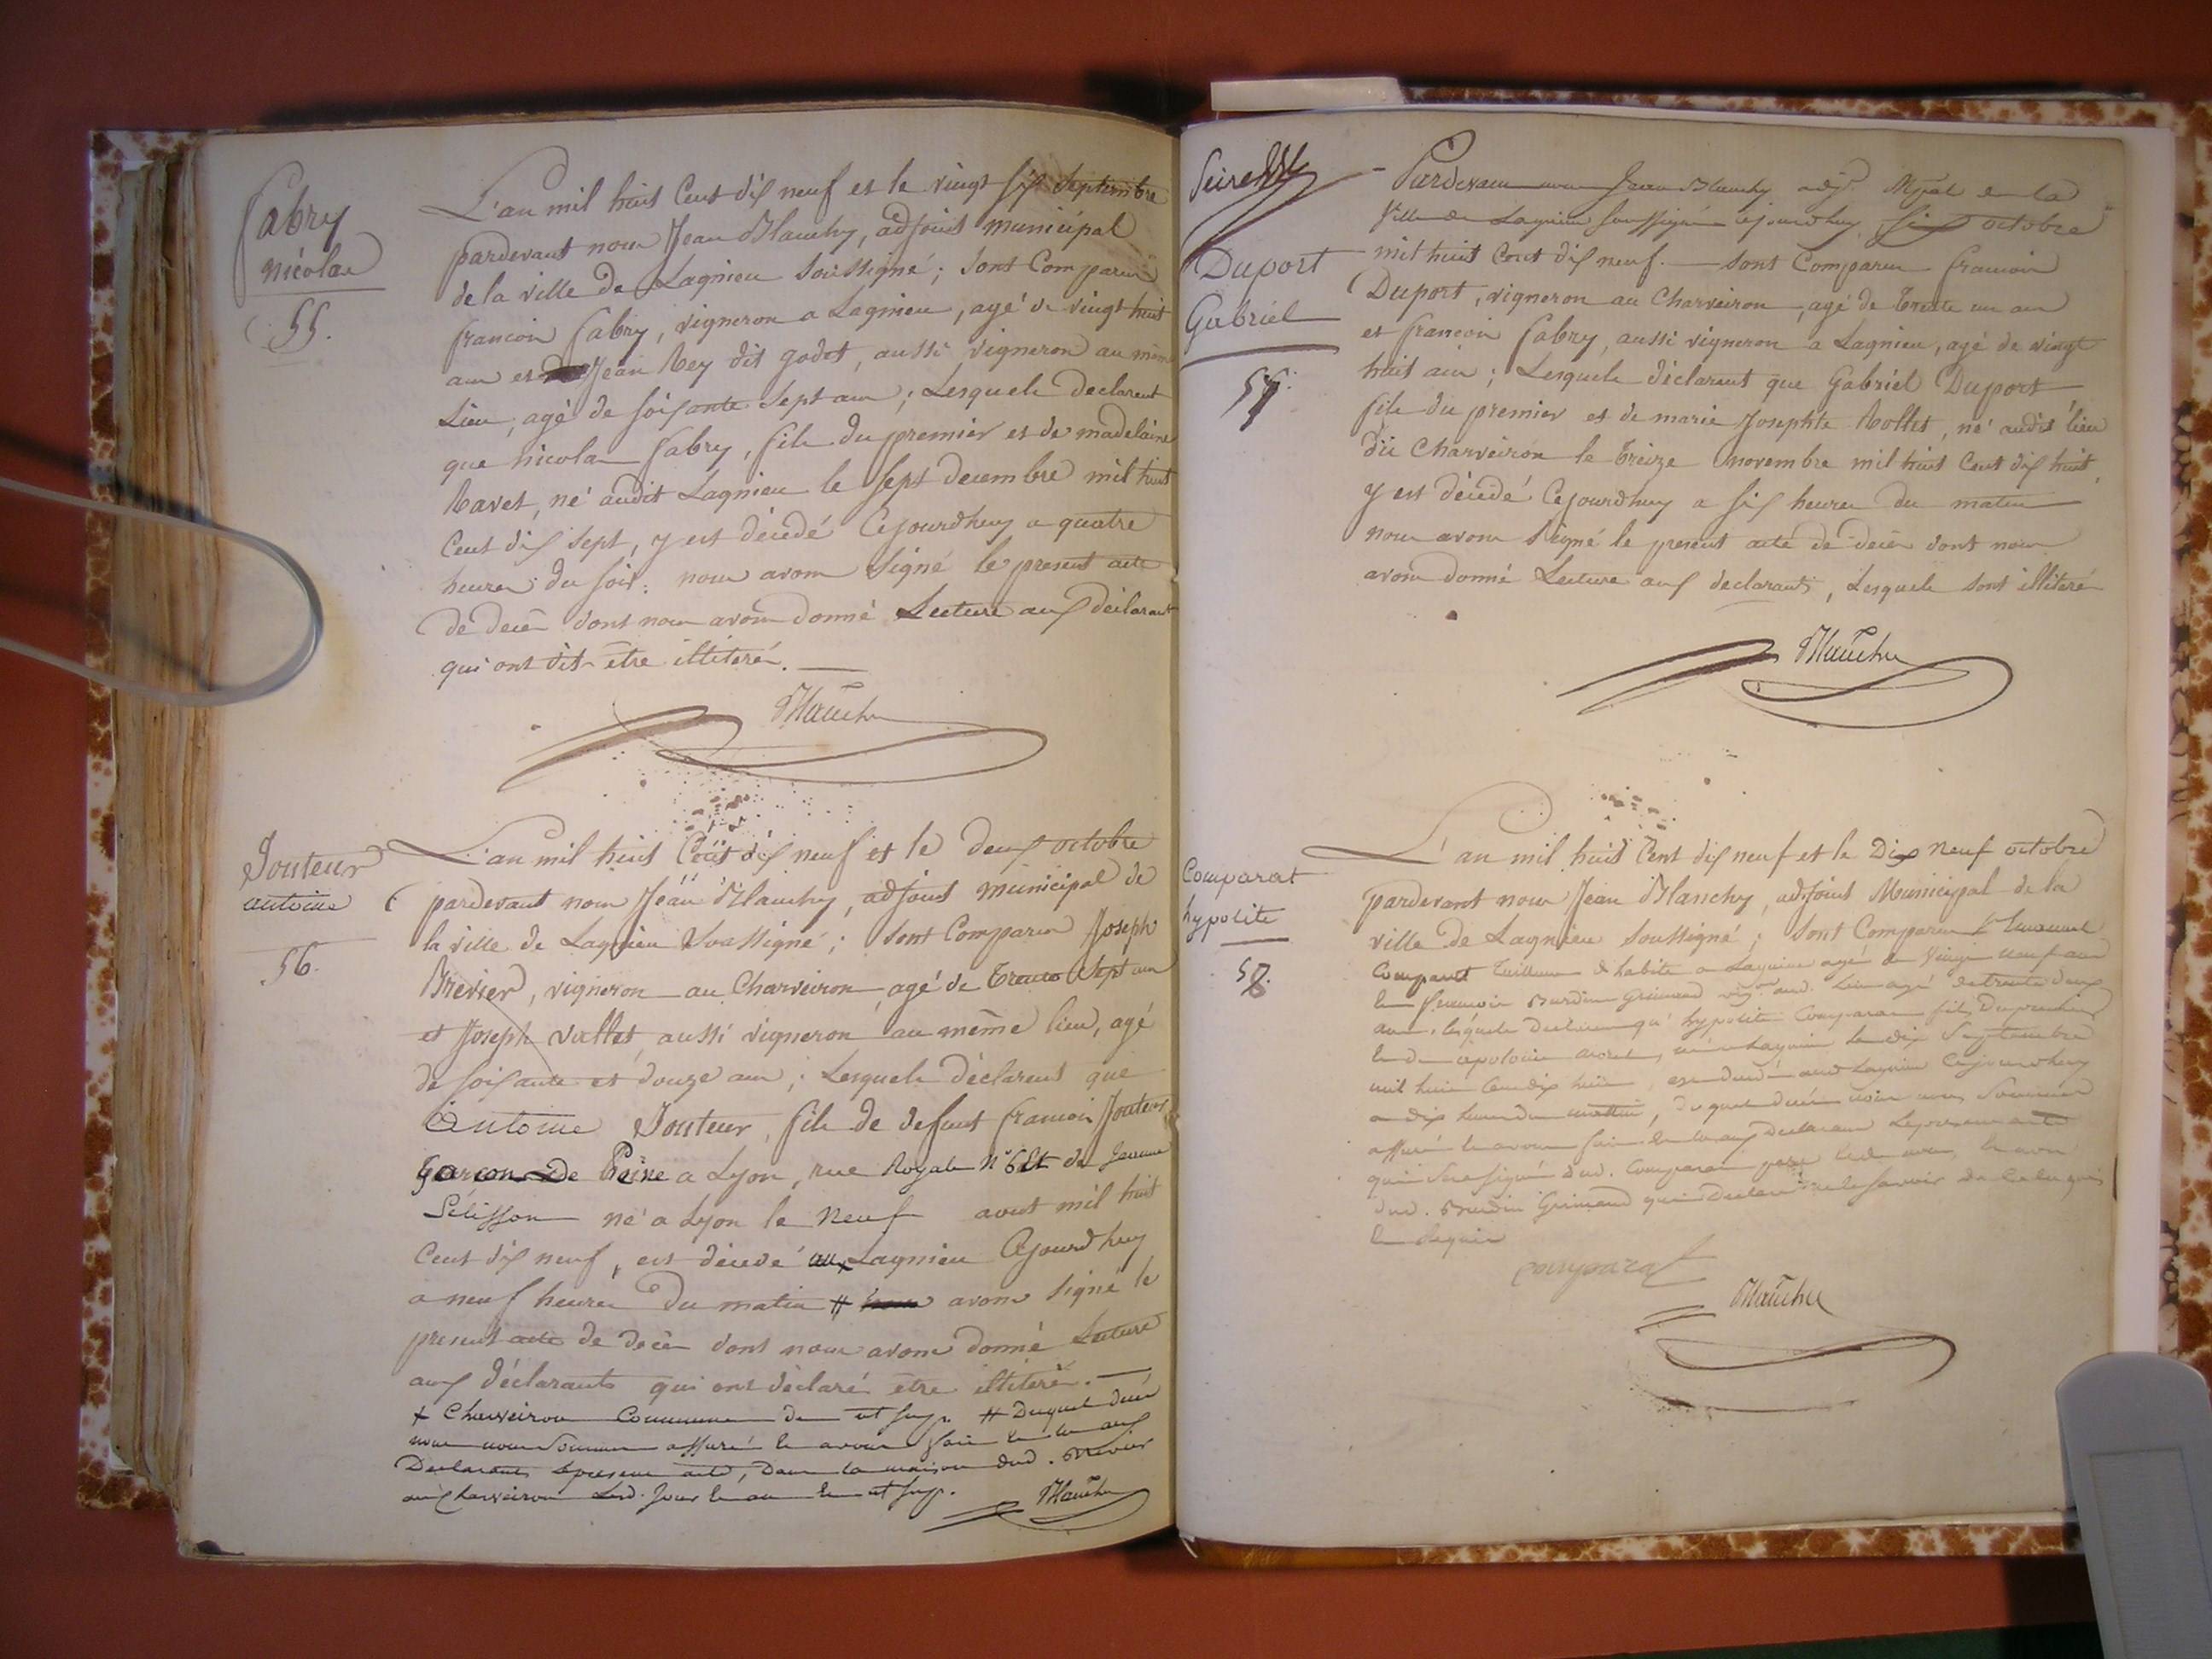 fabry
nicolas
55.
L'an mil huit Cent dix neuf et le vingt six Septembre
pardevant nous Jean Blanchy, adjoint municipal
de la ville de Lagnieu soussigné; sont Comparus
francois fabry, vigneron a Lagnieu, agé de vingt huit
ans et Jean Rey dit godet, aussi vigneron au même
Lieu, agé de soixante Sept ans; Lesquels declarent
que nicolas fabry, fils du premier et de madelaine
Ravet, né audit Lagnieu le sept decembre mil huit
Cent dix sept, y est décédé Cejourdhuy a quatre
heures du soir: nous avons signé le present acte
de decès dont nous avons donné Lecture aux déclarants
qui ont dit être illiterés.
Blanchy
Jouteur
antoine
56.
L'an mil huit Cent dix neuf et le deux octobre
pardevant nous Jean Blanchy, adjoint municipal de
la ville de Lagnieu Soussigné; sont Comparus Joseph
Brevier, vigneron au Charveiron, agé de trente Sept ans
et Joseph vallet, aussi vigneron au même lieu, agé
de soixante et douze ans; Lesquels déclarent que
Antoine Jouteur, fils de defunt francois Jouteur,
Garcon De Peine a Lyon, rue Royale N° 6 Et de Jeanne
Pélisson né a Lyon le Neuf aout mil huit
Cent dix neuf, est décédé au x Lagnieu Cejourdhuy
a neuf heures du matin # avons signé le
present acte de decès dont nous avons donné Lecture
aux déclarants qui ont déclaré être illiterés.
x Charveiron Commune de ut sup. # Duquel décès
nous nous sommes assuré et avons fait et lu aux
Declarants le present acte, Dans la maison dud. Brevier
au Charveiron Led. Jour et an et ut sup.
Blanchy
Duport
Gabriel
57.
Pardevant nous Jean Blanchy adj. Mpal de la
Ville de Lagnieu soussigné cejourdhuy six octobre
mil huit Cent dix neuf. sont Comparus francois
Duport, vigneron au Charveiron, agé de trente un ans
et francois fabry, aussi vigneron a Lagnieu, agé de vingt
huit ans; Lesquels déclarent que Gabriel Duport
fils du premier et de marie Josephte Rollet, né audit lieu
du Charveiron le treize novembre mil huit Cent dix huit,
y est décédé Cejourdhuy a six heures du matin
nous avons signé le present acte de decès dont nous
avons donné Lecture aux declarants, Lesquels sont illiterés
Blanchy
Comparat
hypolite
58.
L'an mil huit Cent dix neuf et le Dix Neuf octobre
pardevant nous Jean Blanchy, adjoint Municipal de la
ville de Lagnieu soussigné; sont Comparus
Comparat Tailleur d'habits a Lagnieu agé de Vingt neuf ans
et francois Burdin Grimaud aud. Lieu agé de trente deux
ans, lesquels Declarent qu' hypolite Comparat fils Du premier
et de apolonie né a Lagnieu le dix Septembre
mil huit Cent dix huit, est décédé aud Lagnieu Cejourdhuy
a dix heures du mattin, duquel décès nous nous sommes
assuré et avons fait et lu aux Declarants Le present acte
qui sera signé dud. Comparat père et de nous, et non
dud. Burdin Grimaud qui a Declaré ne le savoir de ce
et Requis
Comparat
Blanchy